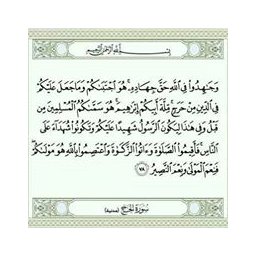 بسم الله الرحمن الرحيم
وَجَٰهِدُوا۟ فِى ٱللَّهِ حَقَّ جِهَادِهِۦ ۚ هُوَ ٱجْتَبَىٰكُمْ وَمَا جَعَلَ عَلَيْكُمْ
فِى ٱلدِّينِ مِنْ حَرَجٍ ۚ مِّلَّةَ أَبِيكُمْ إِبْرَٰهِيمَ ۚ هُوَ سَمَّىٰكُمُ ٱلْمُسْلِمِينَ مِن
قَبْلُ وَفِى هَٰذَا لِيَكُونَ ٱلرَّسُولُ شَهِيدًا عَلَيْكُمْ وَتَكُونُوا۟ شُهَدَآءَ عَلَى
ٱلنَّاسِ ۚ فَأَقِيمُوا۟ ٱلصَّلَوٰةَ وَءَاتُوا۟ ٱلزَّكَوٰةَ وَٱعْتَصِمُوا۟ بِٱللَّهِ هُوَ مَوْلَىٰكُمْ ۖ
فَنِعْمَ ٱلْمَوْلَىٰ وَنِعْمَ ٱلنَّصِيرُ ٧٨
سُورَةُ الحَجّ (مدنية)